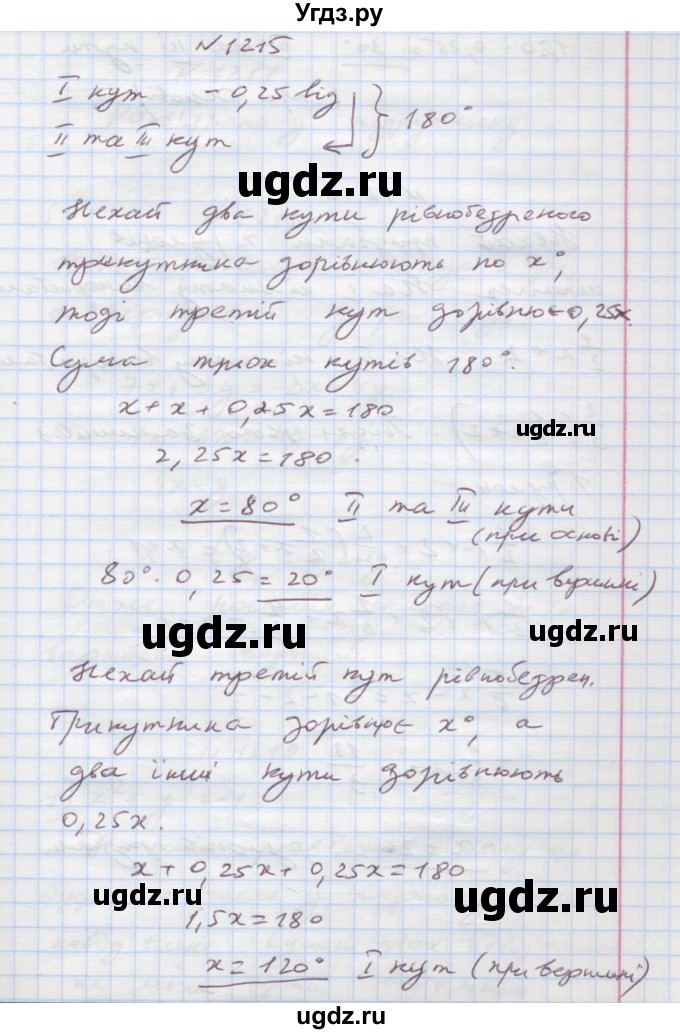 Угдз.ру
N 1215
I кут – 0,25 від
II та III кут } 180°
ugdz.ru
Нехай два кути рівнобедреного
трикутника дорівнюють по x°,
тоді третій кут дорівнює 0,25x.
Сума трьох кутів 180°.
x + x + 0,25x = 180
ugdz.ru
2,25x = 180
x = 80° II та III кути
(при основі)
80° · 0,25 = 20° I кут (при вершині)
ugdz.ru
ugdz.ru
Нехай третій кут рівнобедрен.
трикутника дорівнює x°, а
два інші кути дорівнюють
0,25x.
x + 0,25x + 0,25x = 180
ugdz.ru
ugdz.ru
1,5x = 180
x = 120° I кут (при вершині)
ugdz.ru